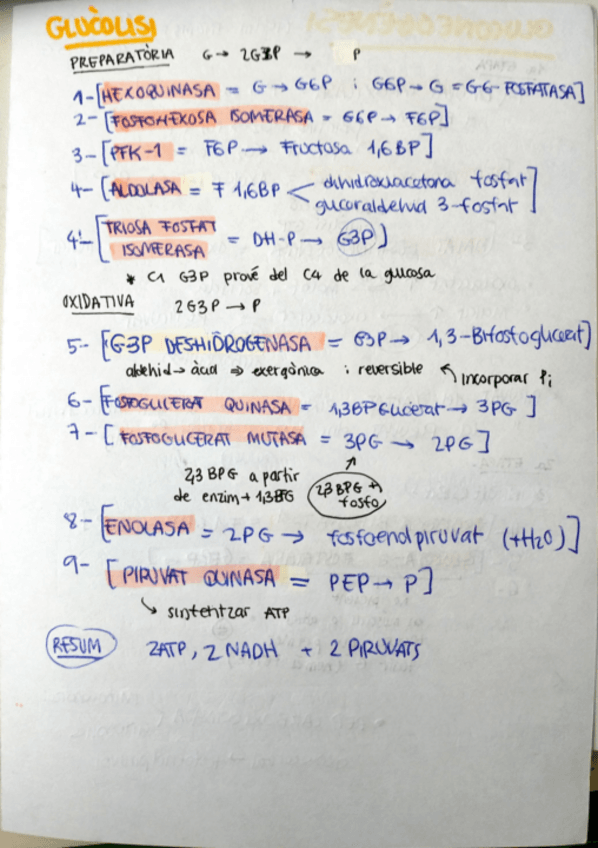 GLUCÒLISI
PREPARATÒRIA G → 2G3P → P
1-[HEXOQUINASA = G → G6P i G6P → G = G6-FOSFATASA]
2-[FOSFOHEXOSA ISOMERASA = G6P → F6P]
3-[PFK-1 = F6P → Fructosa 1,6BP]
4-[ALDOLASA = F 1,6BP < dihidroxiacetona fosfat
gliceraldehid 3-fosfat]
4'-[TRIOSA FOSFAT
ISOMERASA = DH-P → G3P]
* C1 G3P prové del C4 de la glucosa
OXIDATIVA 2G3P → P
5-[G3P DESHIDROGENASA = G3P → 1,3-Bifosfoglicerat]
aldehid → àcid ⇒ exergònica i reversible ↖ Incorporar Pi
6-[FOSFOGLICERAT QUINASA = 1,3BPGlicerat → 3PG]
7-[FOSFOGLICERAT MUTASA = 3PG → 2PG]
2,3 BPG a partir
de enzim + 1,3BPG
↑
2,3 BPG +
fosfo
8-[ENOLASA = 2PG → fosfoenolpiruvat (+H2O)]
9-[PIRUVAT QUINASA = PEP → P]
↳ sintetitzar ATP
RESUM 2ATP, 2 NADH + 2 PIRUVATS